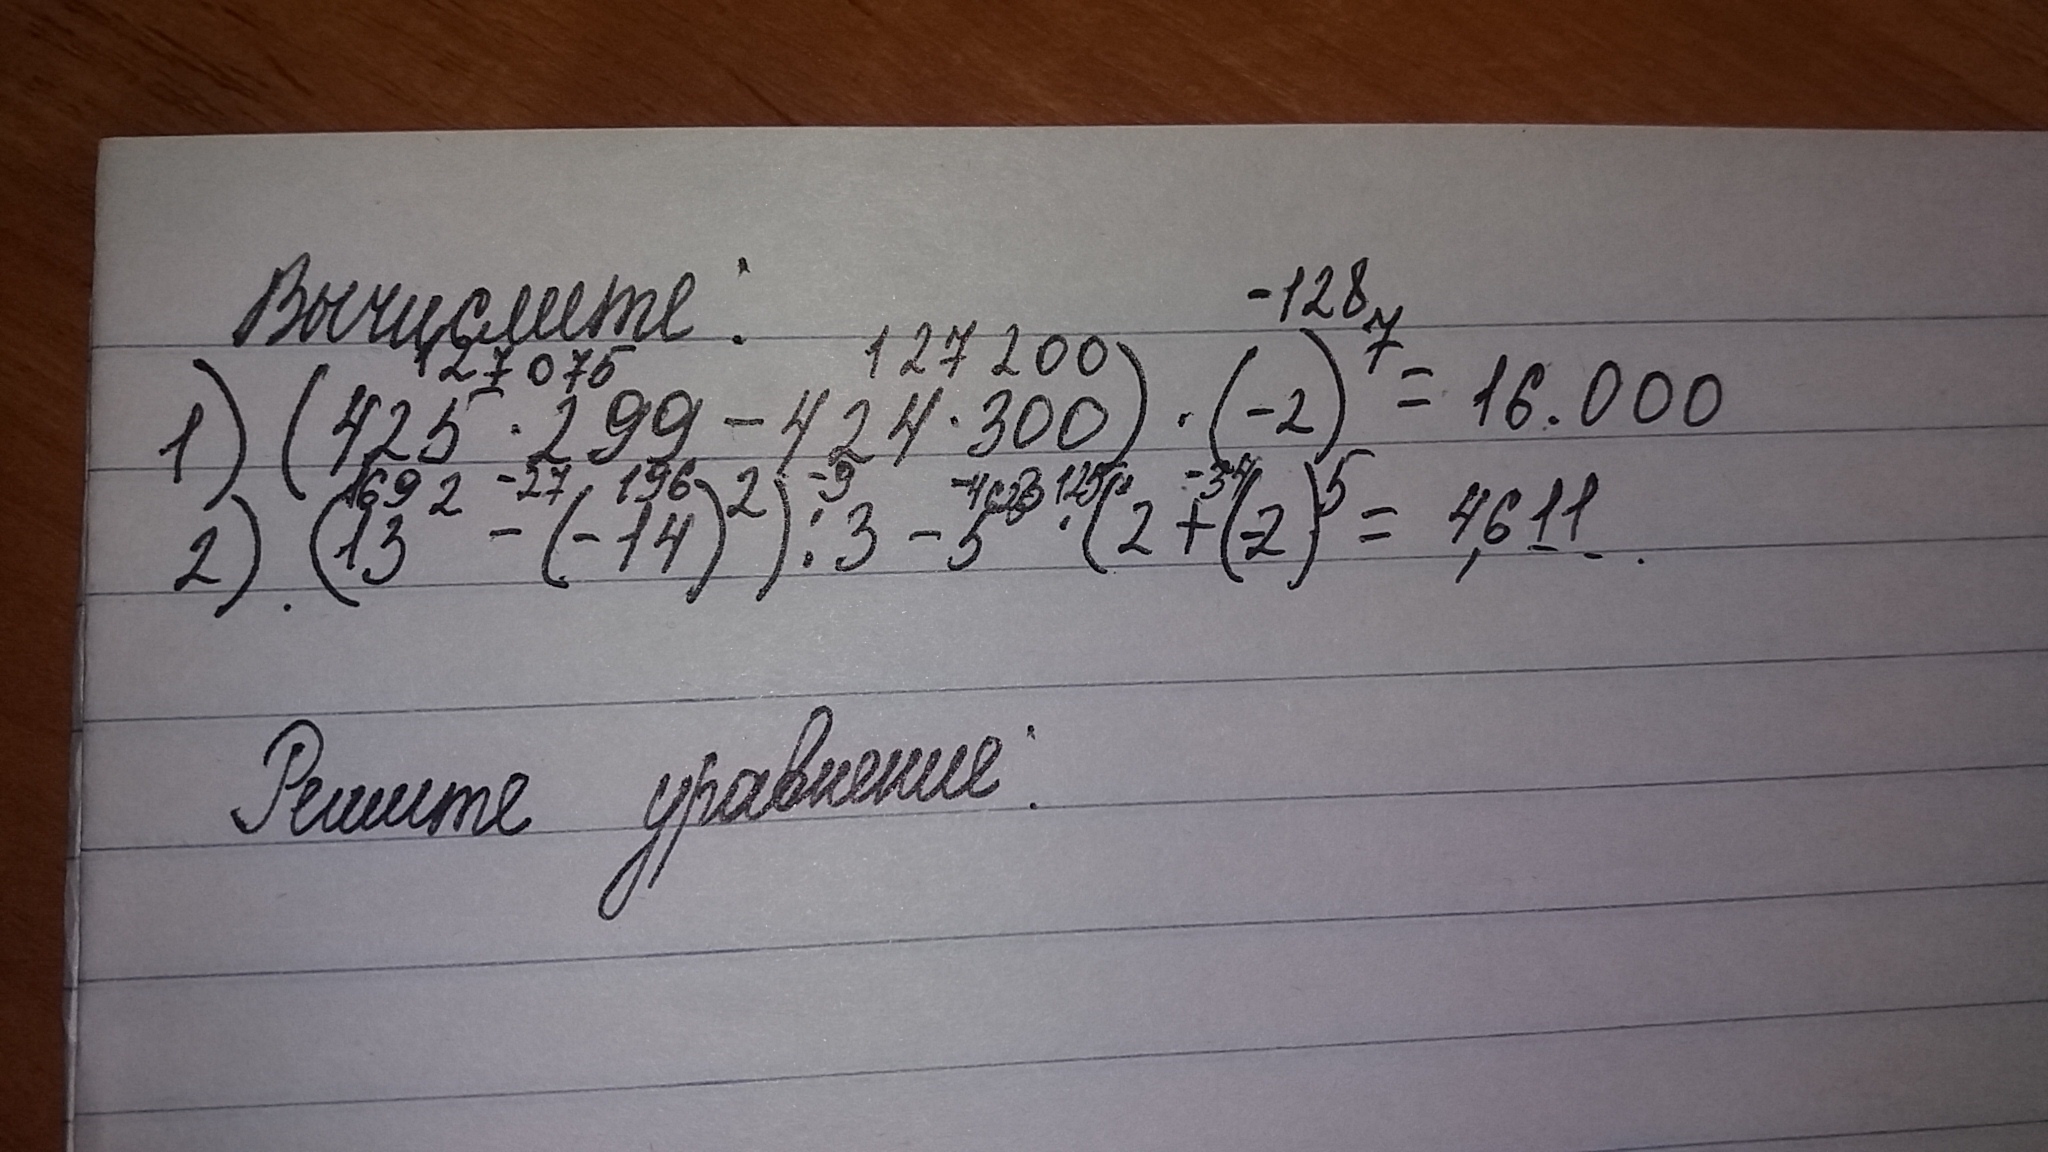 Вычислите:
-128
127075 127200
1) (425·299-424·300)·(-2)⁷=16.000
169 -27 196 -9 125
2). (13² -(-14)²):3-5 ·(2+(-2)⁵= 4,611.
Решите уравнение: